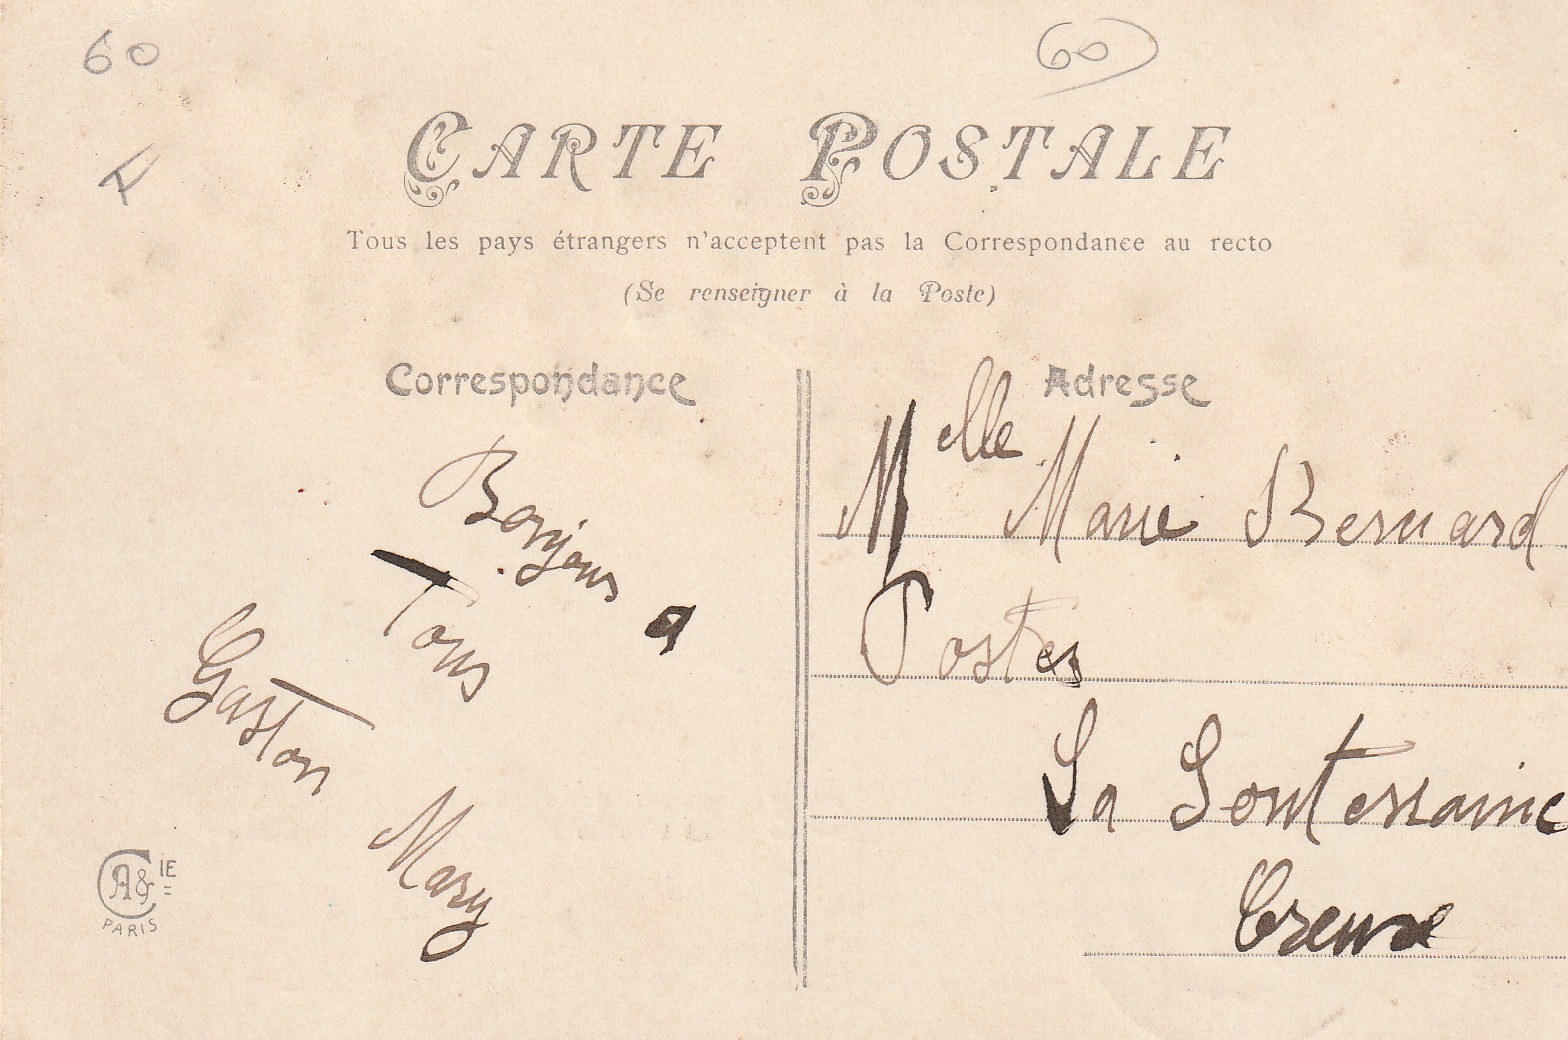 60
60
F
CARTE POSTALE
Tous les pays étrangers n'acceptent pas la Correspondance au recto
(Se renseigner à la Poste)
Correspondance
Bonjour a
Tous
Gaston
Mary
A & CIE
PARIS
Adresse
Melle Marie Bernard
Postes
La Souterraine
Creuse